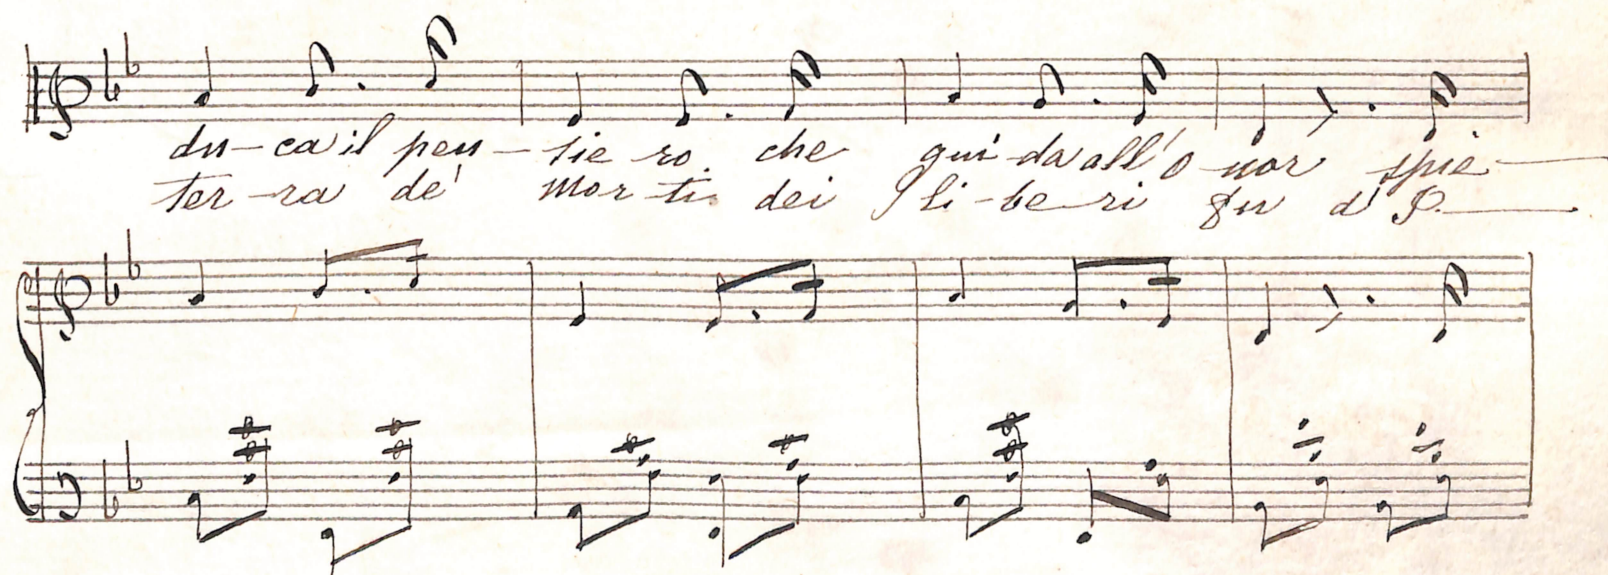 du-ca il pen-sie-ro che gui-da all'o-nor spie-
ter-ra de' mor-ti dei li-be-ri fu d' P.